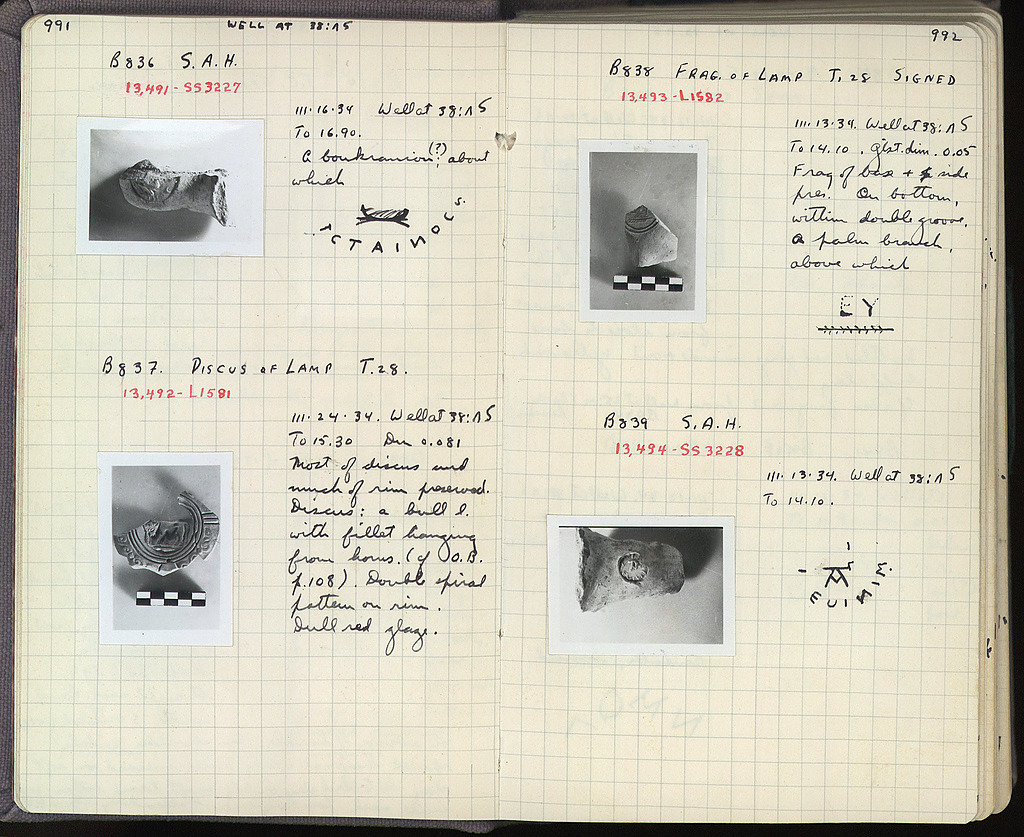 991
WELL AT 38:ΛS
B836 S.A.H.
13,491-SS3227
III·16·34 Well at 38:ΛS
To 16.90.
A boukranion(?), about
which
CTAINOCS.
B837. DISCUS OF LAMP T.28.
13,492-L1581
III·24·34. Well at 38:ΛS
To 15.30 Dm 0.081
Most of discus and
much of rim preserved.
Discus: a bull l.
with fillet hanging
from horns. (cf O.B.
p.108). Double spiral
pattern on rim.
Dull red glaze.
992
B838 FRAG. OF LAMP T.28 SIGNED
13,493-L1582
III·13·34. Well at 38:ΛS
To 14.10. Gtst. dim. 0.05
Frag of base + side
pres. On bottom,
within double groove,
a palm branch,
above which
EY
B839 S.A.H.
13,494-SS3228
III·13·34. Well at 38:ΛS
To 14.10.